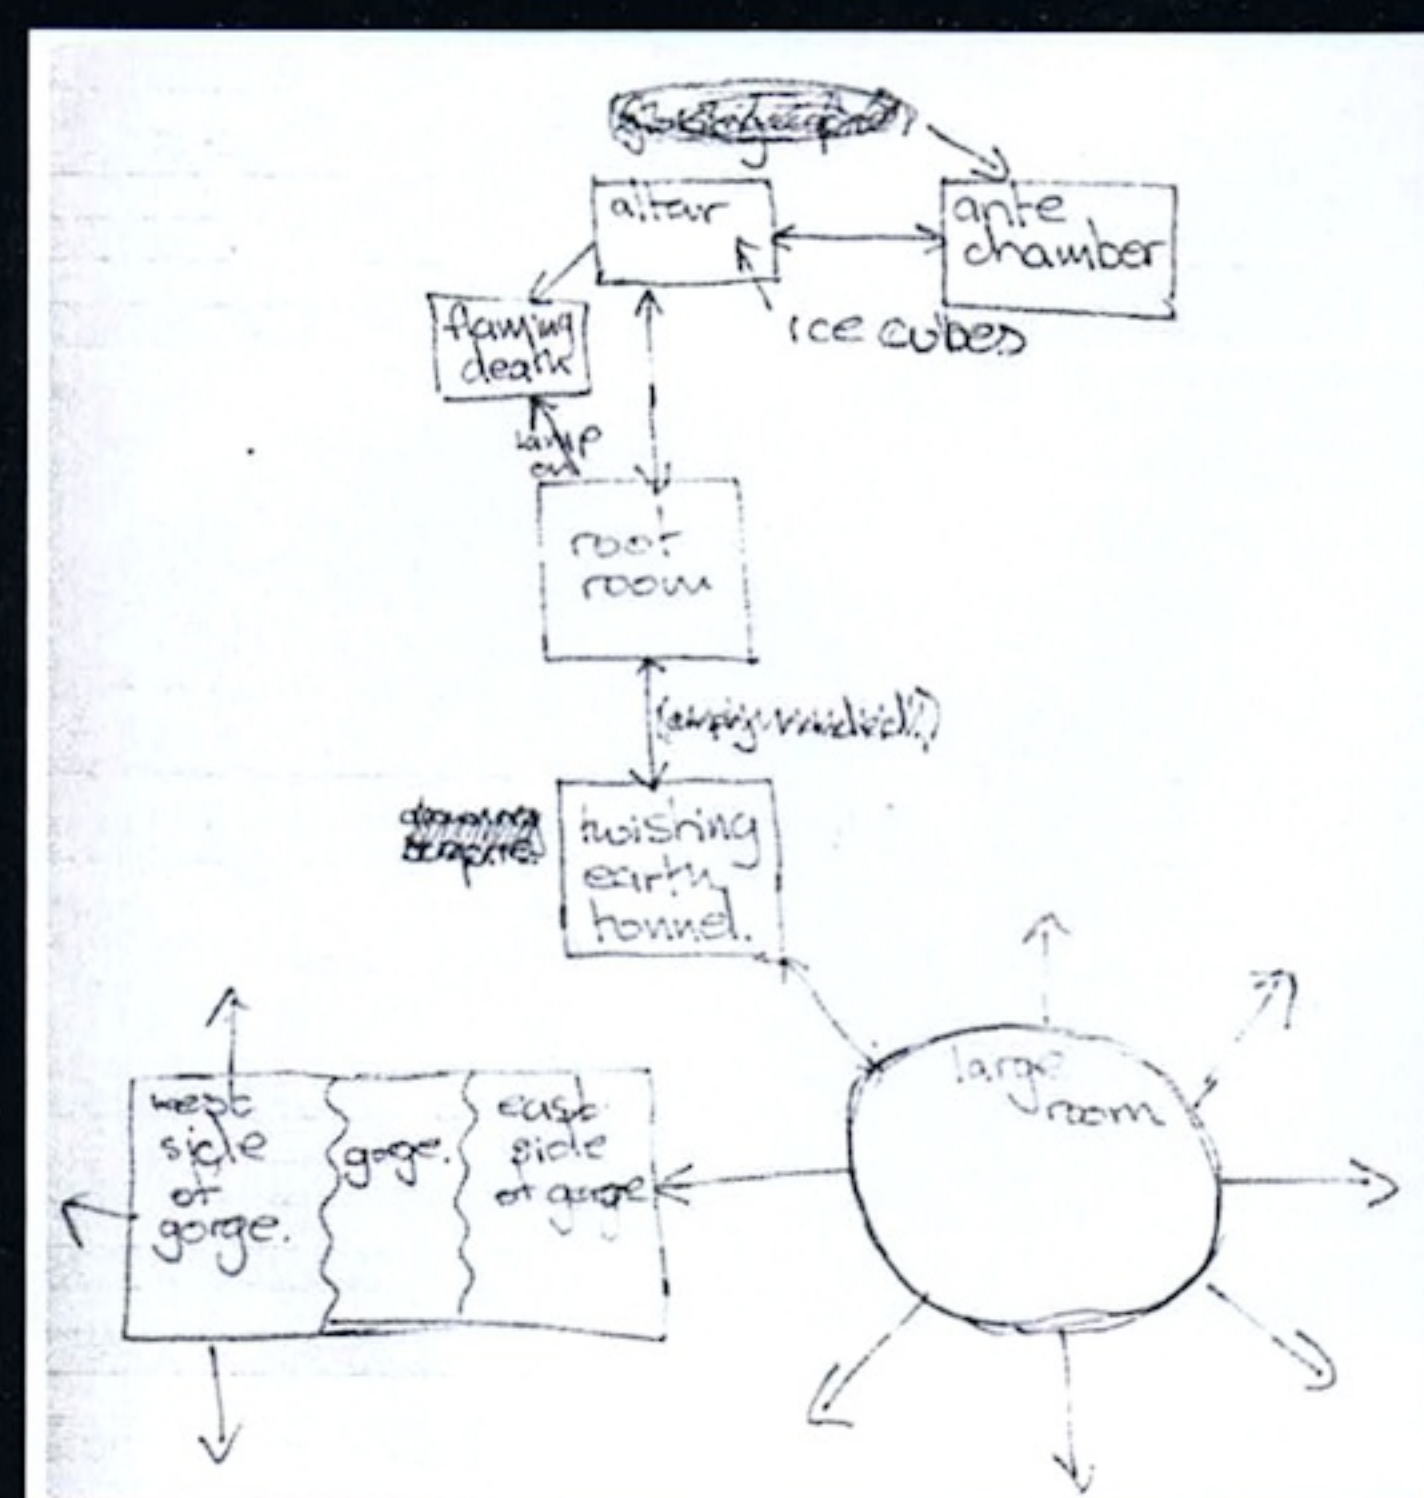 altar
ante
chamber
ice cubes
flaming
death
lamp
on
root
room
twisting
earth
tunnel.
large
room
west
side
of
gorge.
gorge.
east
side
of gorge